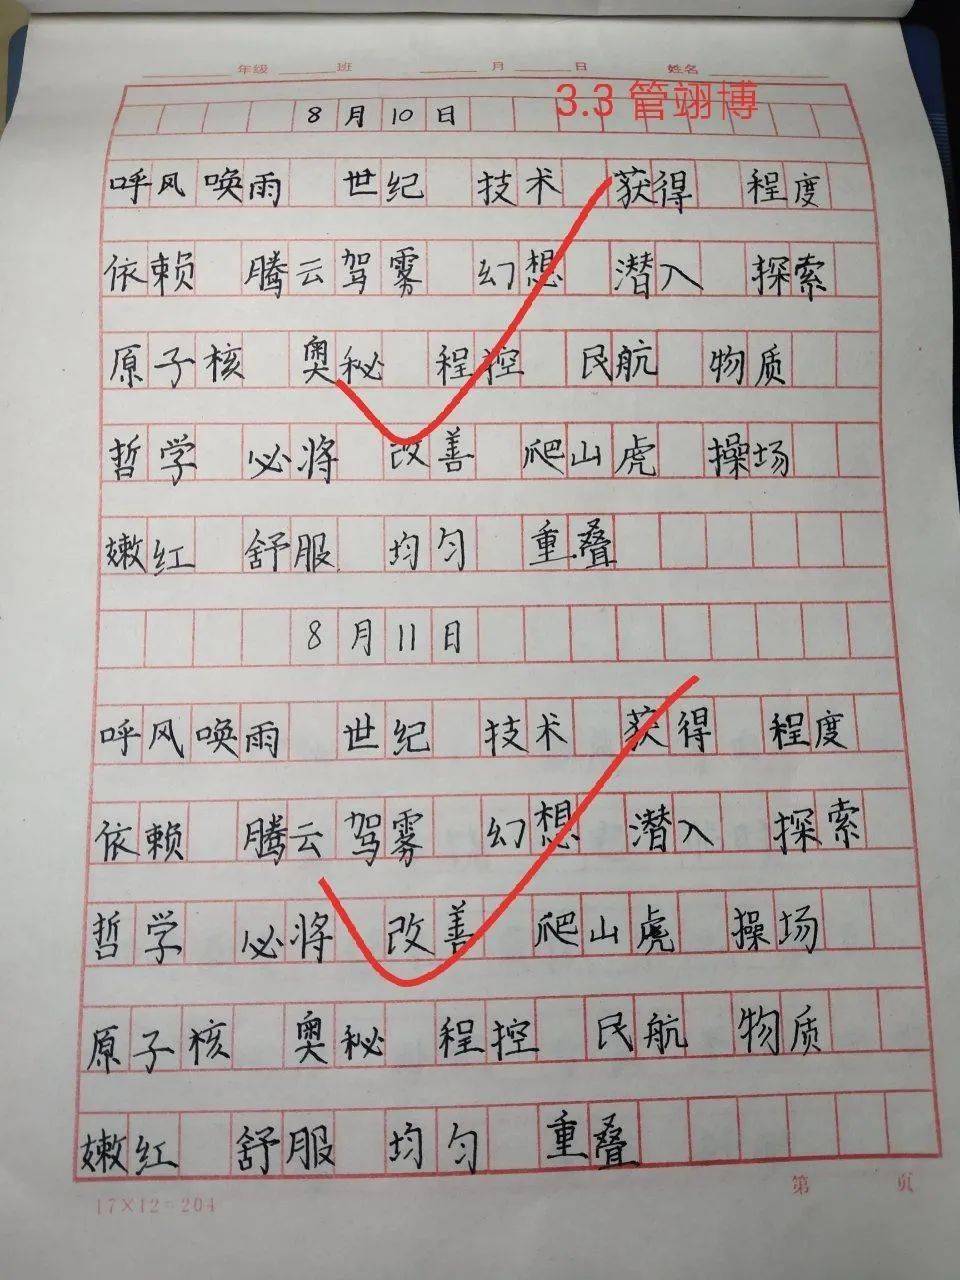 年级 班 月 日 姓名
3.3 管翊博
8月10日
呼风唤雨 世纪 技术 获得 程度
依赖 腾云驾雾 幻想 潜入 探索
原子核 奥秘 程控 民航 物质
哲学 必将 改善 爬山虎 操场
嫩红 舒服 均匀 重叠
8月11日
呼风唤雨 世纪 技术 获得 程度
依赖 腾云驾雾 幻想 潜入 探索
哲学 必将 改善 爬山虎 操场
原子核 奥秘 程控 民航 物质
嫩红 舒服 均匀 重叠
17×12=204 第 页